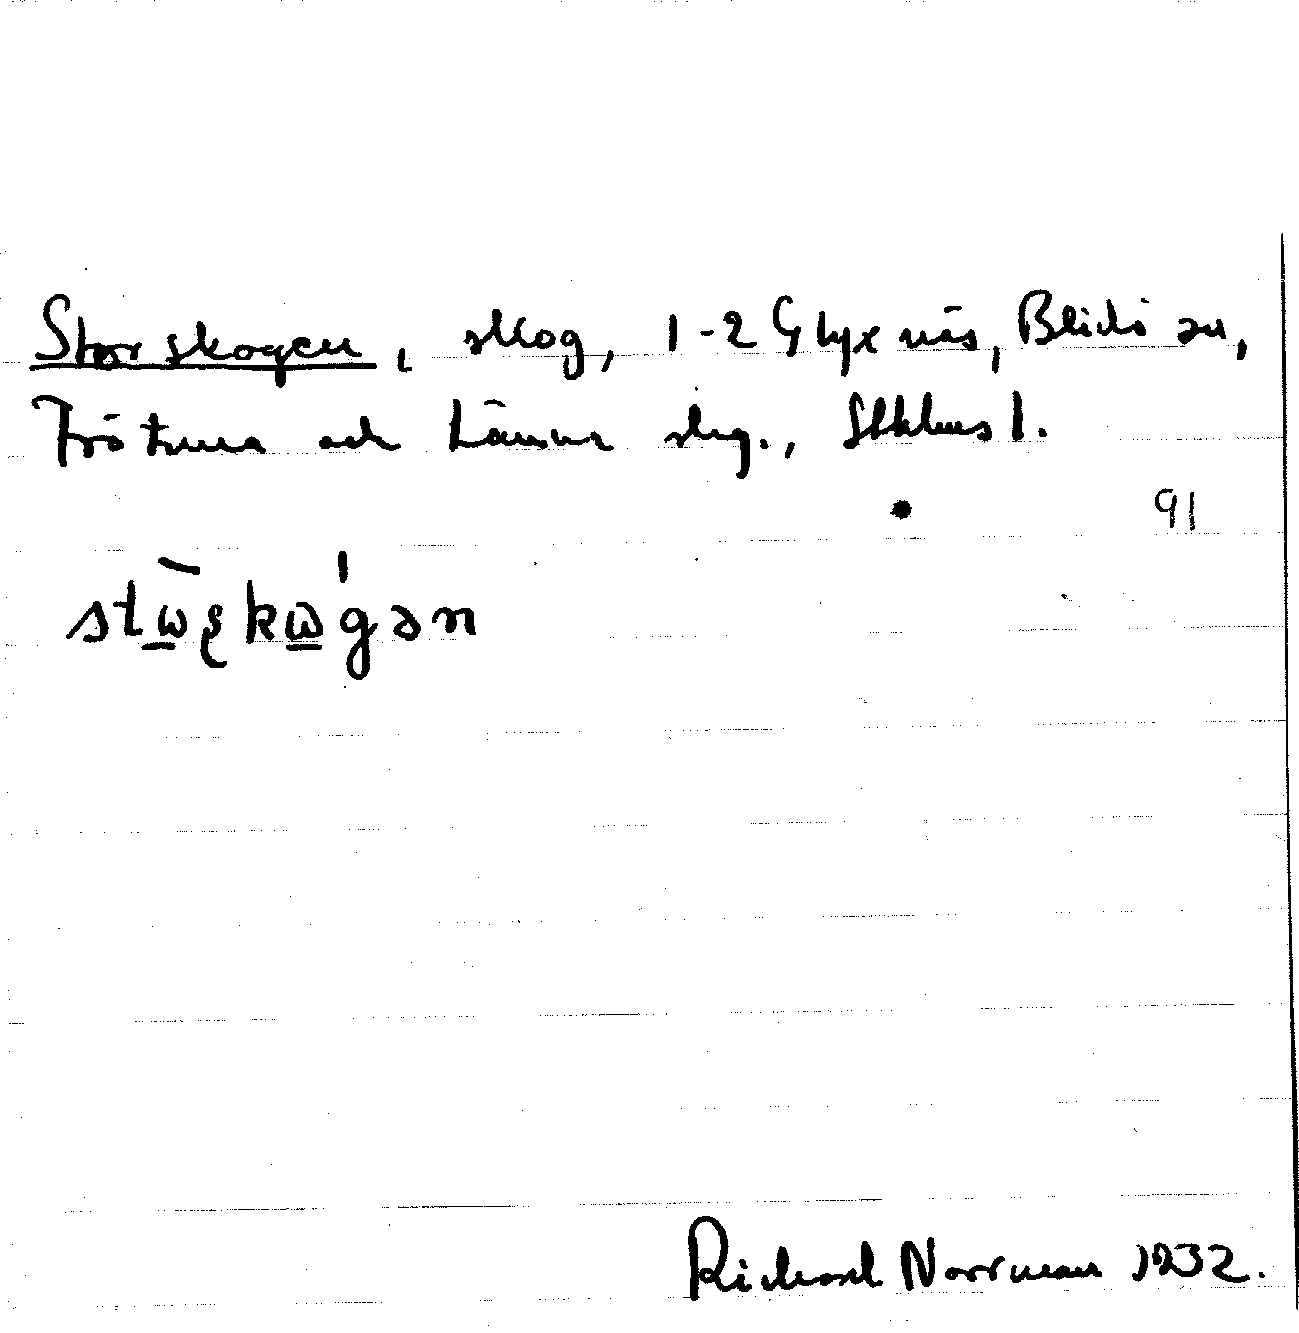 Storskogen, skog, 1-2 Glyxnäs, Blidö sn,
Frötuna och Länna skg., Stkhms l.
91
stω̲̄ʂkω̲'gən
Richard Norrman 1932.